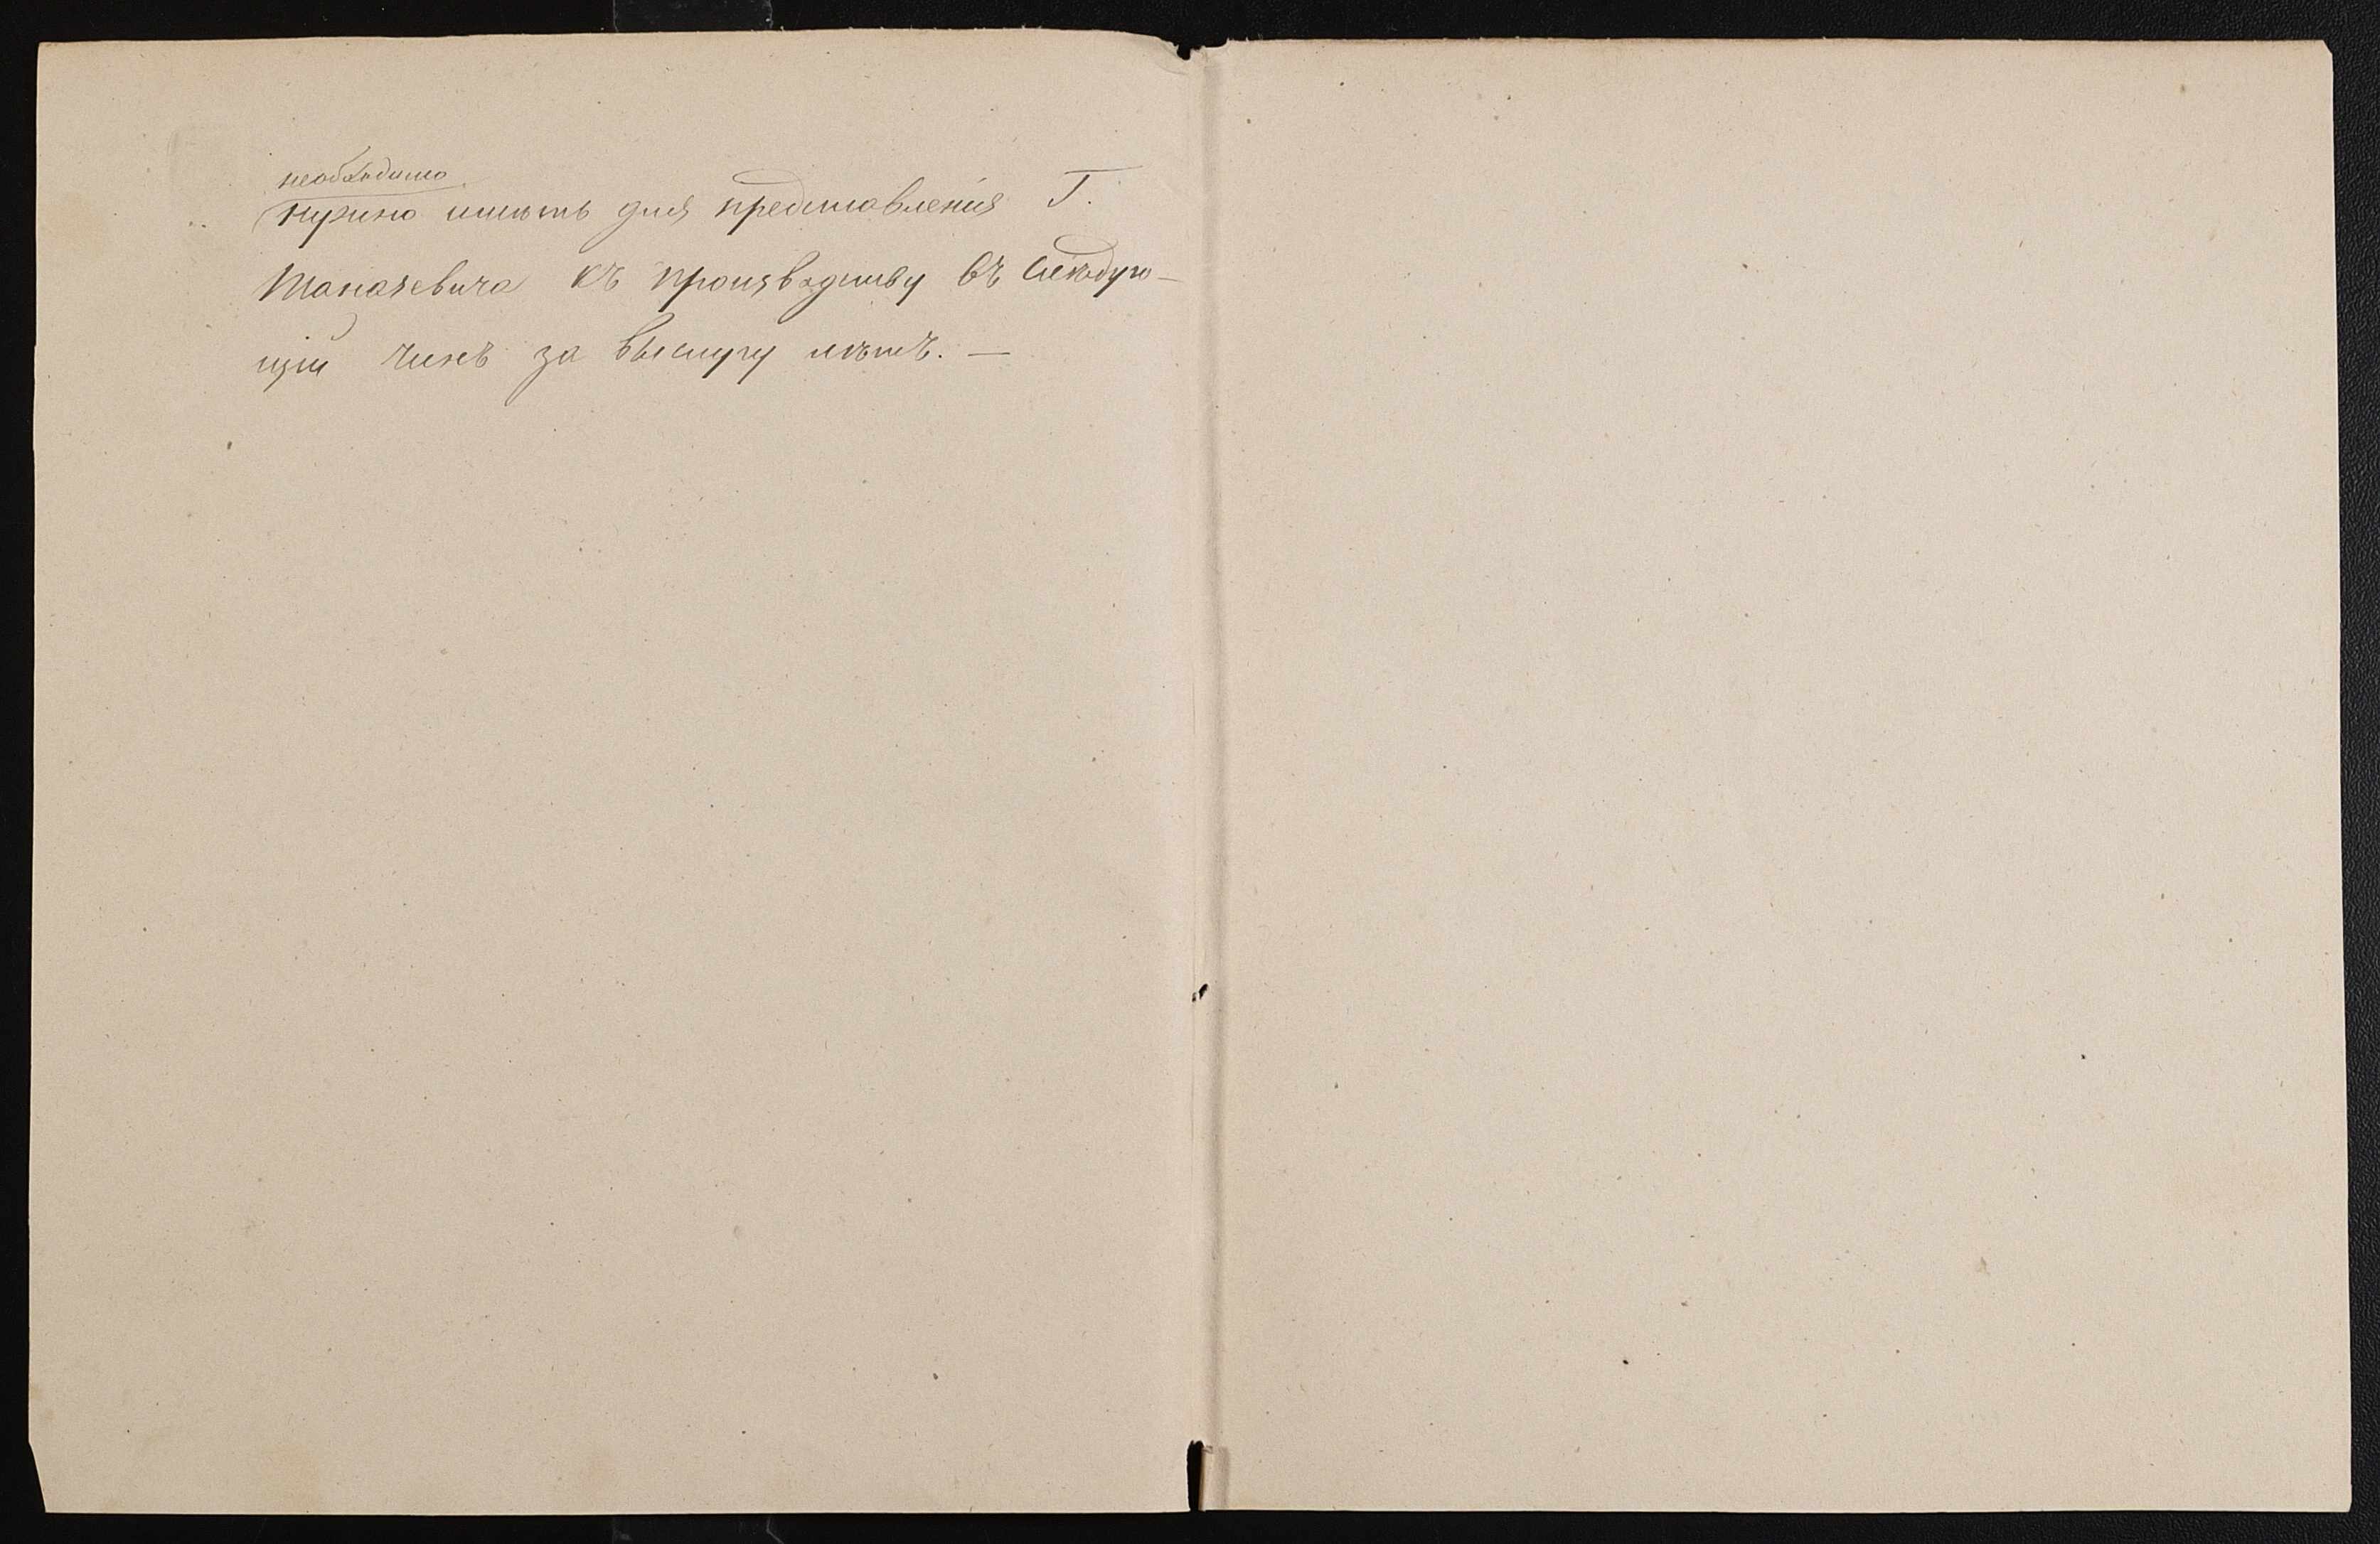 необходимо
нужно имѣть для представленія Г.
Таначевича къ производству въ слѣдую-
щій чинъ за выслугу лѣтъ. —